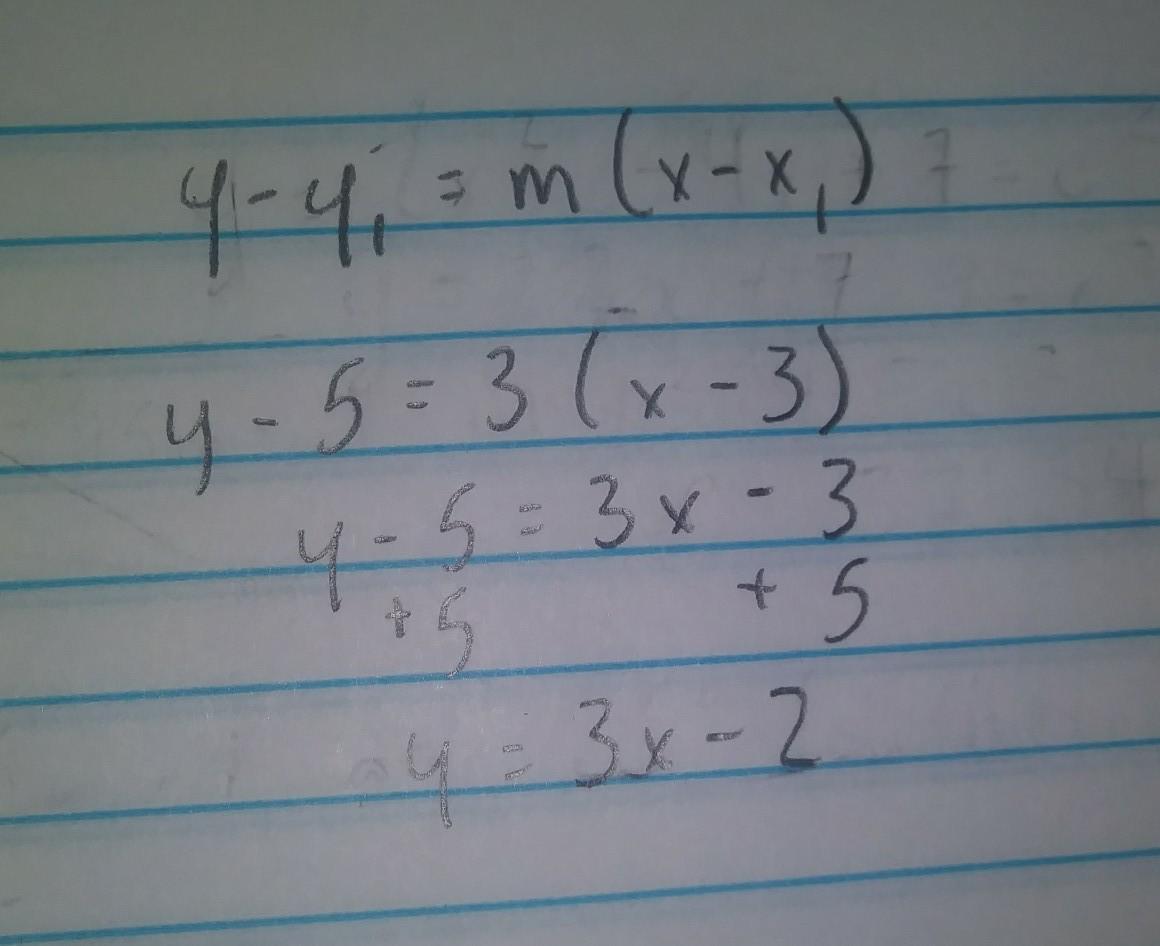 y - y₁ = m(x - x₁)
y - 5 = 3(x - 3)
y - 5 = 3x - 3
+ 5 + 5
y = 3x - 2